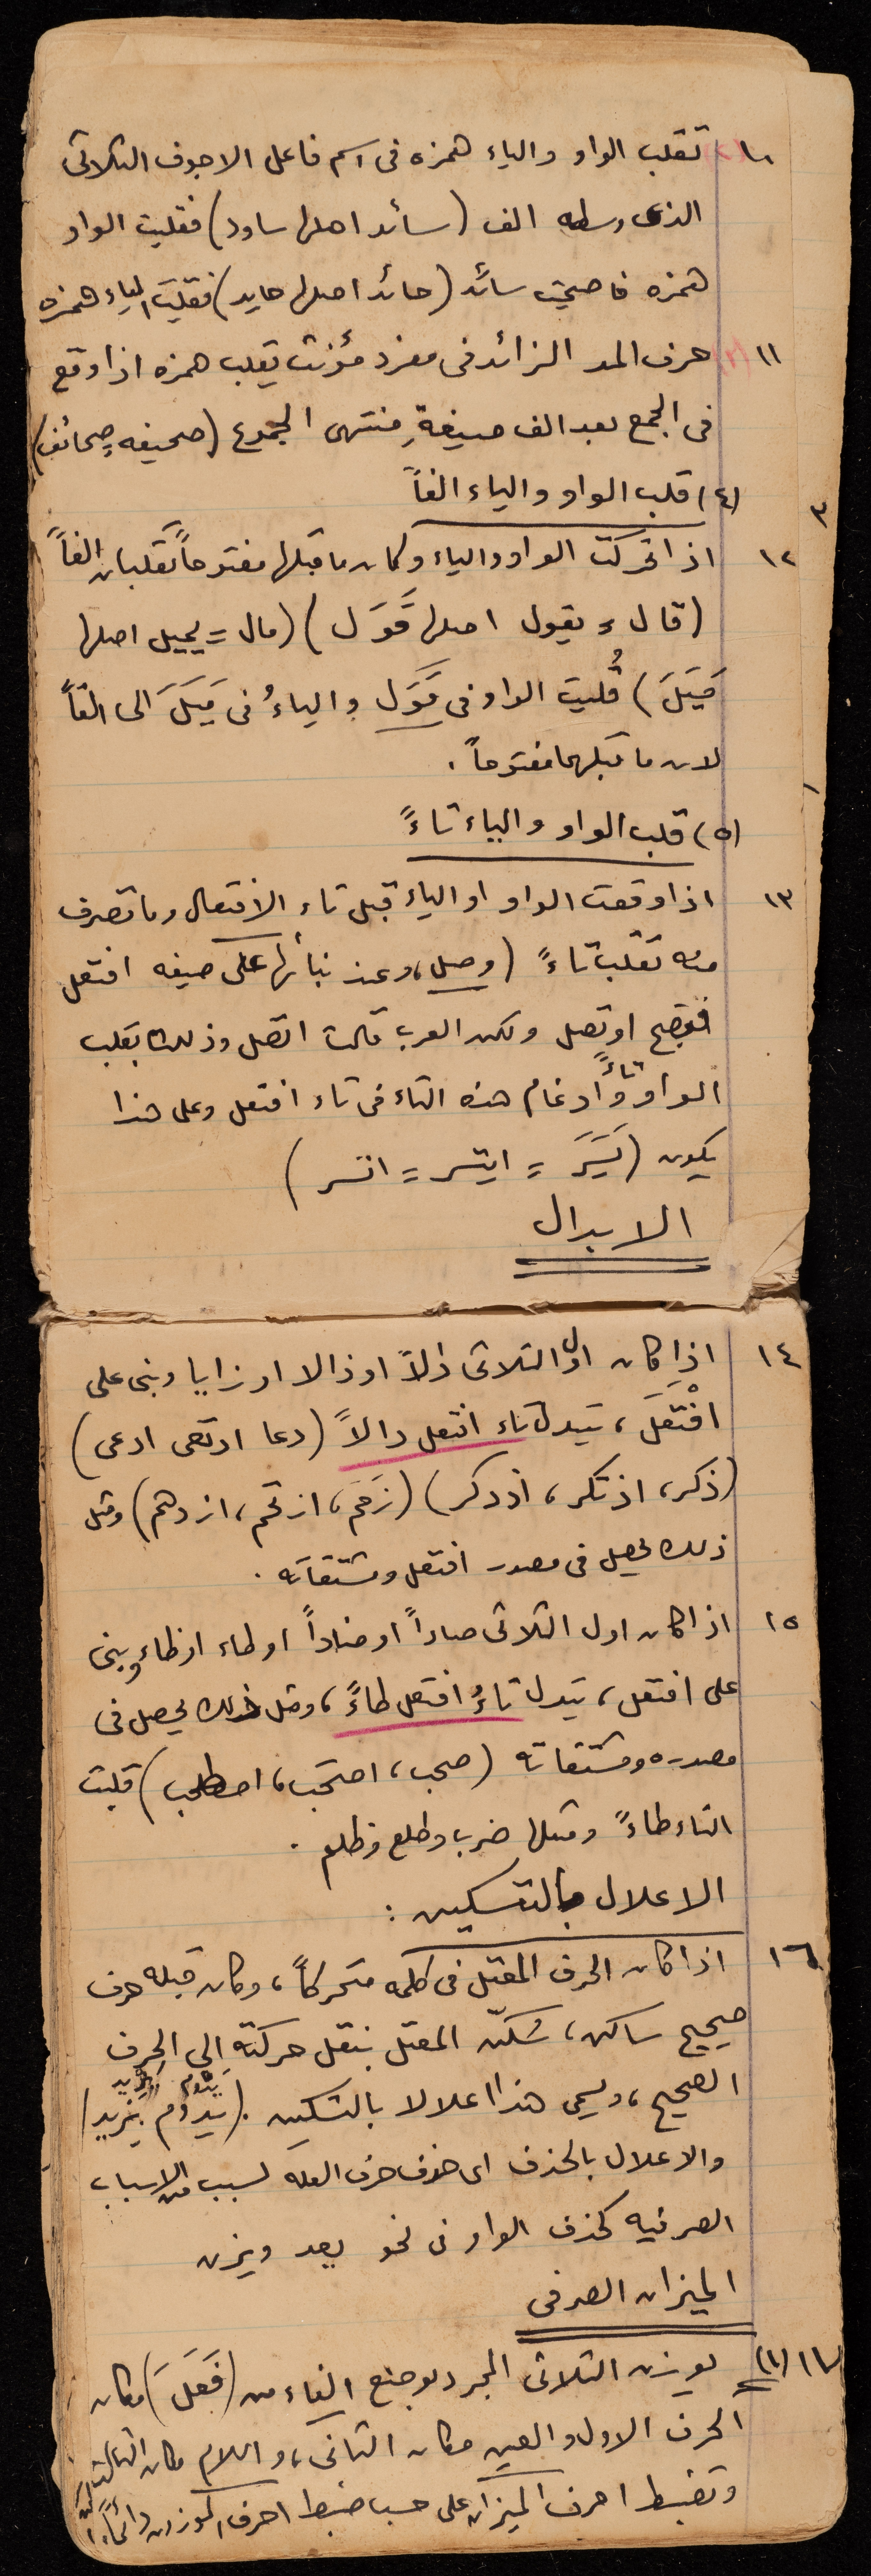 ١٠ (٢) تقلب الواو والياء همزه فى اسم فاعل الاجوف الثلاثى
الذى وسطه الف (سائد اصلها ساود) فقلبت الواو
همزه فاصبحت سائد (حائد اصلها حايد) فقلبت الياء همزه
١١ (٣) حرف المد الزائد فى مفرد مؤنث يقلب همزه اذا وقع
فى الجمع بعد الف صيغةِ منتهى الجموع (صحيفه صحائف)
(٤) قلب الواو والياء الفاً
٣
١٢ اذا تحركت الواو والياء وكان ما قبلها مفتوحاً تقلبان الفاً
(قال = يقول اصلها قَوَل) (مال = يميل اصلها
مَيَلَ) قُلبت الواو فى قَوَل والياءُ فى مَيَلَ الى الفاً
لان ما قبلهما مفتوحاً.
(٥) قلب الواو والياء تاءً
١٣ اذا وقعت الواو او الياء قبل تاء الافتعال وما تصرف
منه تقلب تاءً (وصل، وعند بنائها على صيغه افتعل
فتصبح اوتصل ولكن العرب قالت اتصل وذلك بقلب
الواو تاءً وادغام هذه التاء فى تاء افتعل وعلى هذا
يكون (يَسَرَ = ايتسر = اتسر)
الابدال
١٤ اذا كان اول الثلاثى دالاً او ذالا او زايا وبنى على
افْتَعَلَ، تبدل تاء افتعل دالاً (دعا ادتعى ادعى)
(ذكر، اذتكر، اذدكر) (زَحَمَ، ازتحم، ازدحم) ومثل
ذلك يحصل فى مصدر افتعل ومشتقاته.
١٥ اذا كان اول الثلاثى صاداً او ضاداً او طاء او ظاء وبنى
على افتعل، تبدل تاءُ افتعل طاءً، ومثل ذلك يحصل فى
مصدره ومشتقاته (صحب، اصتحب، اصطحب) قلبت
التاء طاءً ومثلها ضرب وطلع وظلم.
الاعلال بالتسكين:
١٦ اذا كان الحرف المعتل فى كلمه متحركاً، وكان قبله حرف
صحيح ساكن، سُكّن المعتل بنقل حركته الى الحرف
الصحيح، ويسمى هذا اعلالا بالتسكين. (يدوم يزيد)
والاعلال بالحذف اى حذف حرف العله لسبب من الاسباب
الصرفيه كحذف الواو فى نحو يعد ويزن
الميزان الصرفى
١٧ (١) يوزن الثلاثى المجرد بوضع الفاء من (فَعَلَ) مكان
الحرف الاول والعين مكان الثانى، واللام مكان الثالث
وتضبط احرف الميزان على حسب ضبط احرف الموزون دائماً.